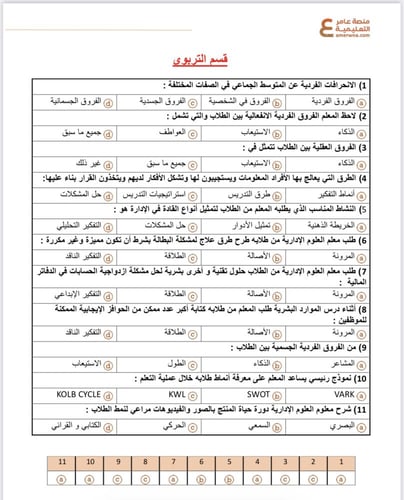 منصة عامر
التعليمية
amerwise.com
قسم التربوي
1) الانحرافات الفردية عن المتوسط الجماعي في الصفات المختلفة :
a الفروق الفردية b الفروق في الشخصية c الفروق الجسدية d الفروق الجسمانية
2) لاحظ المعلم الفروق الفردية الانفعالية بين الطلاب والتي تشمل :
a الذكاء b الاستيعاب c العواطف d جميع ما سبق
3) الفروق العقلية بين الطلاب تتمثل في :
a الذكاء b الاستيعاب c جميع ما سبق d غير ذلك
4) الطرق التي يعالج بها الأفراد المعلومات ويستجيبون لها وتشكل الأفكار لديهم ويتخذون القرار بناء عليها:
a أنماط التفكير b طرق التدريس c استراتيجيات التدريس d حل المشكلات
5) النشاط المناسب الذي يطلبه المعلم من الطلاب لتمثيل أنواع القادة في الإدارة هو :
a الخريطة الذهنية b تمثيل الأدوار c حل المشكلات d التفكير التحليلي
6) طلب معلم العلوم الإدارية من طلابه طرح طرق علاج لمشكلة البطالة بشرط أن تكون مميزة وغير مكررة :
a المرونة b الأصالة c الطلاقة d التفكير الناقد
7) طلب معلم العلوم الإدارية من الطلاب حلول تقنية و أخرى بشرية لحل مشكلة ازدواجية الحسابات في الدفاتر
المالية :
a المرونة b الأصالة c الطلاقة d التفكير الإبداعي
8) أثناء درس الموارد البشرية طلب المعلم من طلابه كتابة أكبر عدد ممكن من الحوافز الإيجابية الممكنة
للموظفين :
a المرونة b الأصالة c الطلاقة d التفكير الناقد
9) من الفروق الفردية الجسمية بين الطلاب :
a المشاعر b الذكاء c الطول d الاستيعاب
10) نموذج رئيسي يساعد المعلم على معرفة أنماط طلابه خلال عملية التعلم :
a VARK b SWOT c KWL d KOLB CYCLE
11) شرح معلوم العلوم الإدارية دورة حياة المنتج بالصور والفيديوهات مراعي لنمط الطلاب :
a البصري b السمعي c الحركي d الكتابي و القرائي
1 2 3 4 5 6 7 8 9 10 11
a c c a b b a c c a a